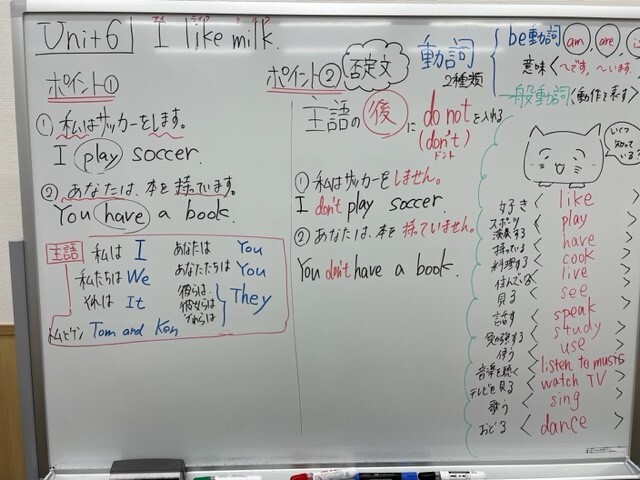 Unit6 I like milk.
ポイント①
① 私はサッカーをします。
I play soccer.
② あなたは、本を持っています。
You have a book.
主語
私は I あなたは You
私たちは We あなたたちは You
それは It 彼らは 彼女らは それらは They
トムとケン Tom and Ken
ポイント② 否定文
主語の後に do not を入れる
(don't)
ドント
① 私はサッカーをしません。
I don't play soccer.
② あなたは、本を持っていません。
You don't have a book.
動詞
2種類
be動詞 am, are, is
意味 ～です, ～います.
一般動詞 (動作を表す)
いくつ知っている?
好き like
スポーツ 演奏する play
持っている have
料理する cook
住んでいる live
見る see
話す speak
勉強する study
使う use
音楽を聴く listen to music
テレビを見る watch TV
歌う sing
おどる dance